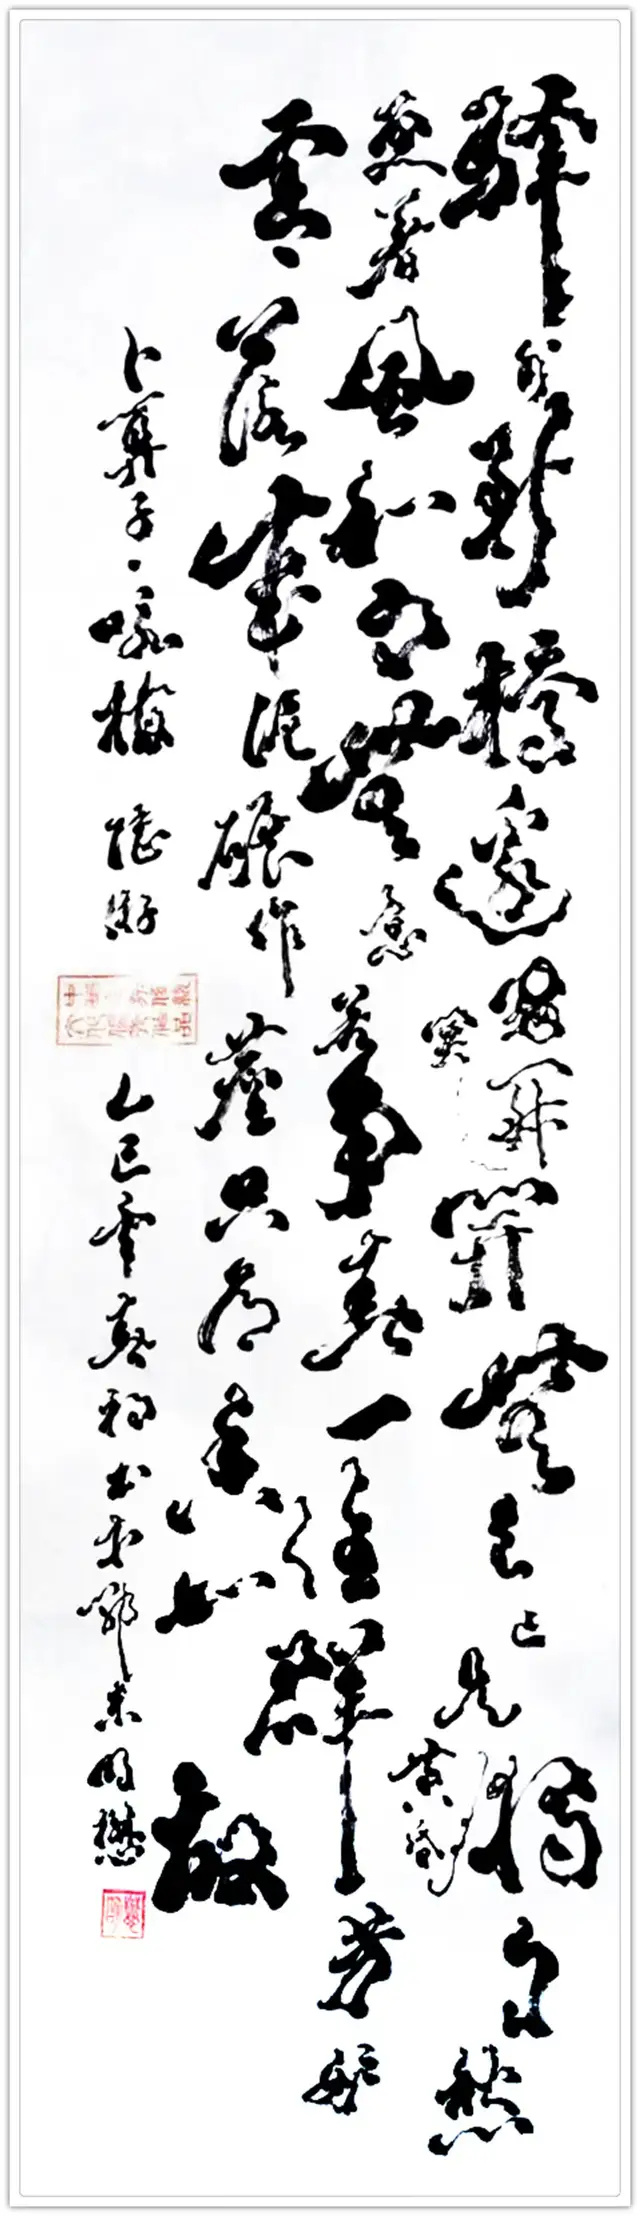 驛外斷橋邊寂寞開無主已是黃昏獨自愁
著風和雨無意苦爭春一任群芳妒
零落成泥碾作塵只有香如故
卜算子·咏梅 陸游 乙巳年春初书于鄂東明懋